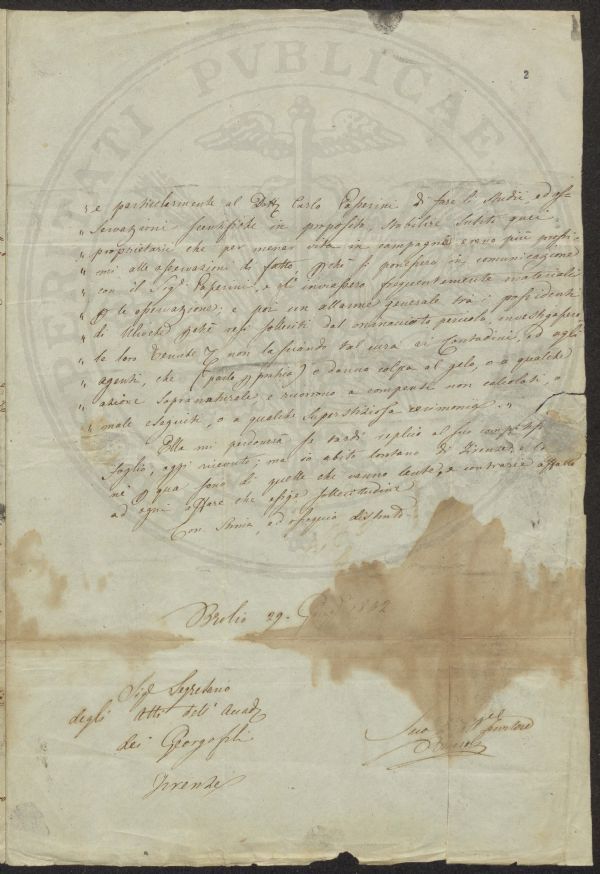 PERITATI PVBLICAE
2
" e particolarmente al Dott. Carlo Passerini di fare li Studii, ed os-
" servazioni scientifiche in proposito, stabilire subito quei
" proprietarii che per menar vita in campagna erano più prossi-
" mi alle osservazioni di fatto, perché si ponessero in comunicazione
" con il Sigr Passerini, e gli inviassero frequentemente materiali
" per le osservazione; e poi un allarme generale tra i possidenti
" di Uliveti perché resi solleciti dal minacciato pericolo, investigassero
" le loro Tenute non lasciando tal cura ai Contadini, ed agli
" agenti, che (parlo per pratica) o danno colpa al gelo, o a qualche
" azione sopranaturale e ricorrono a compensi non calcolati, o
" male eseguiti, o a qualche superstiziosa cerimonia. "
Ella mi perdonerà se tardi replico al suo
foglio, oggi ricevuto; ma io abito lontano di Firenze, e le
di qua sono di quelle che vanno lente, e contrarie affatto
ad ogni affare che esige sollecitudine
Con Stima, ed ossequio distinto
Brolio 29. 1842
Sigr Segretario
degli Atti dell' Accad
dei Georgofili
Firenze
Suo